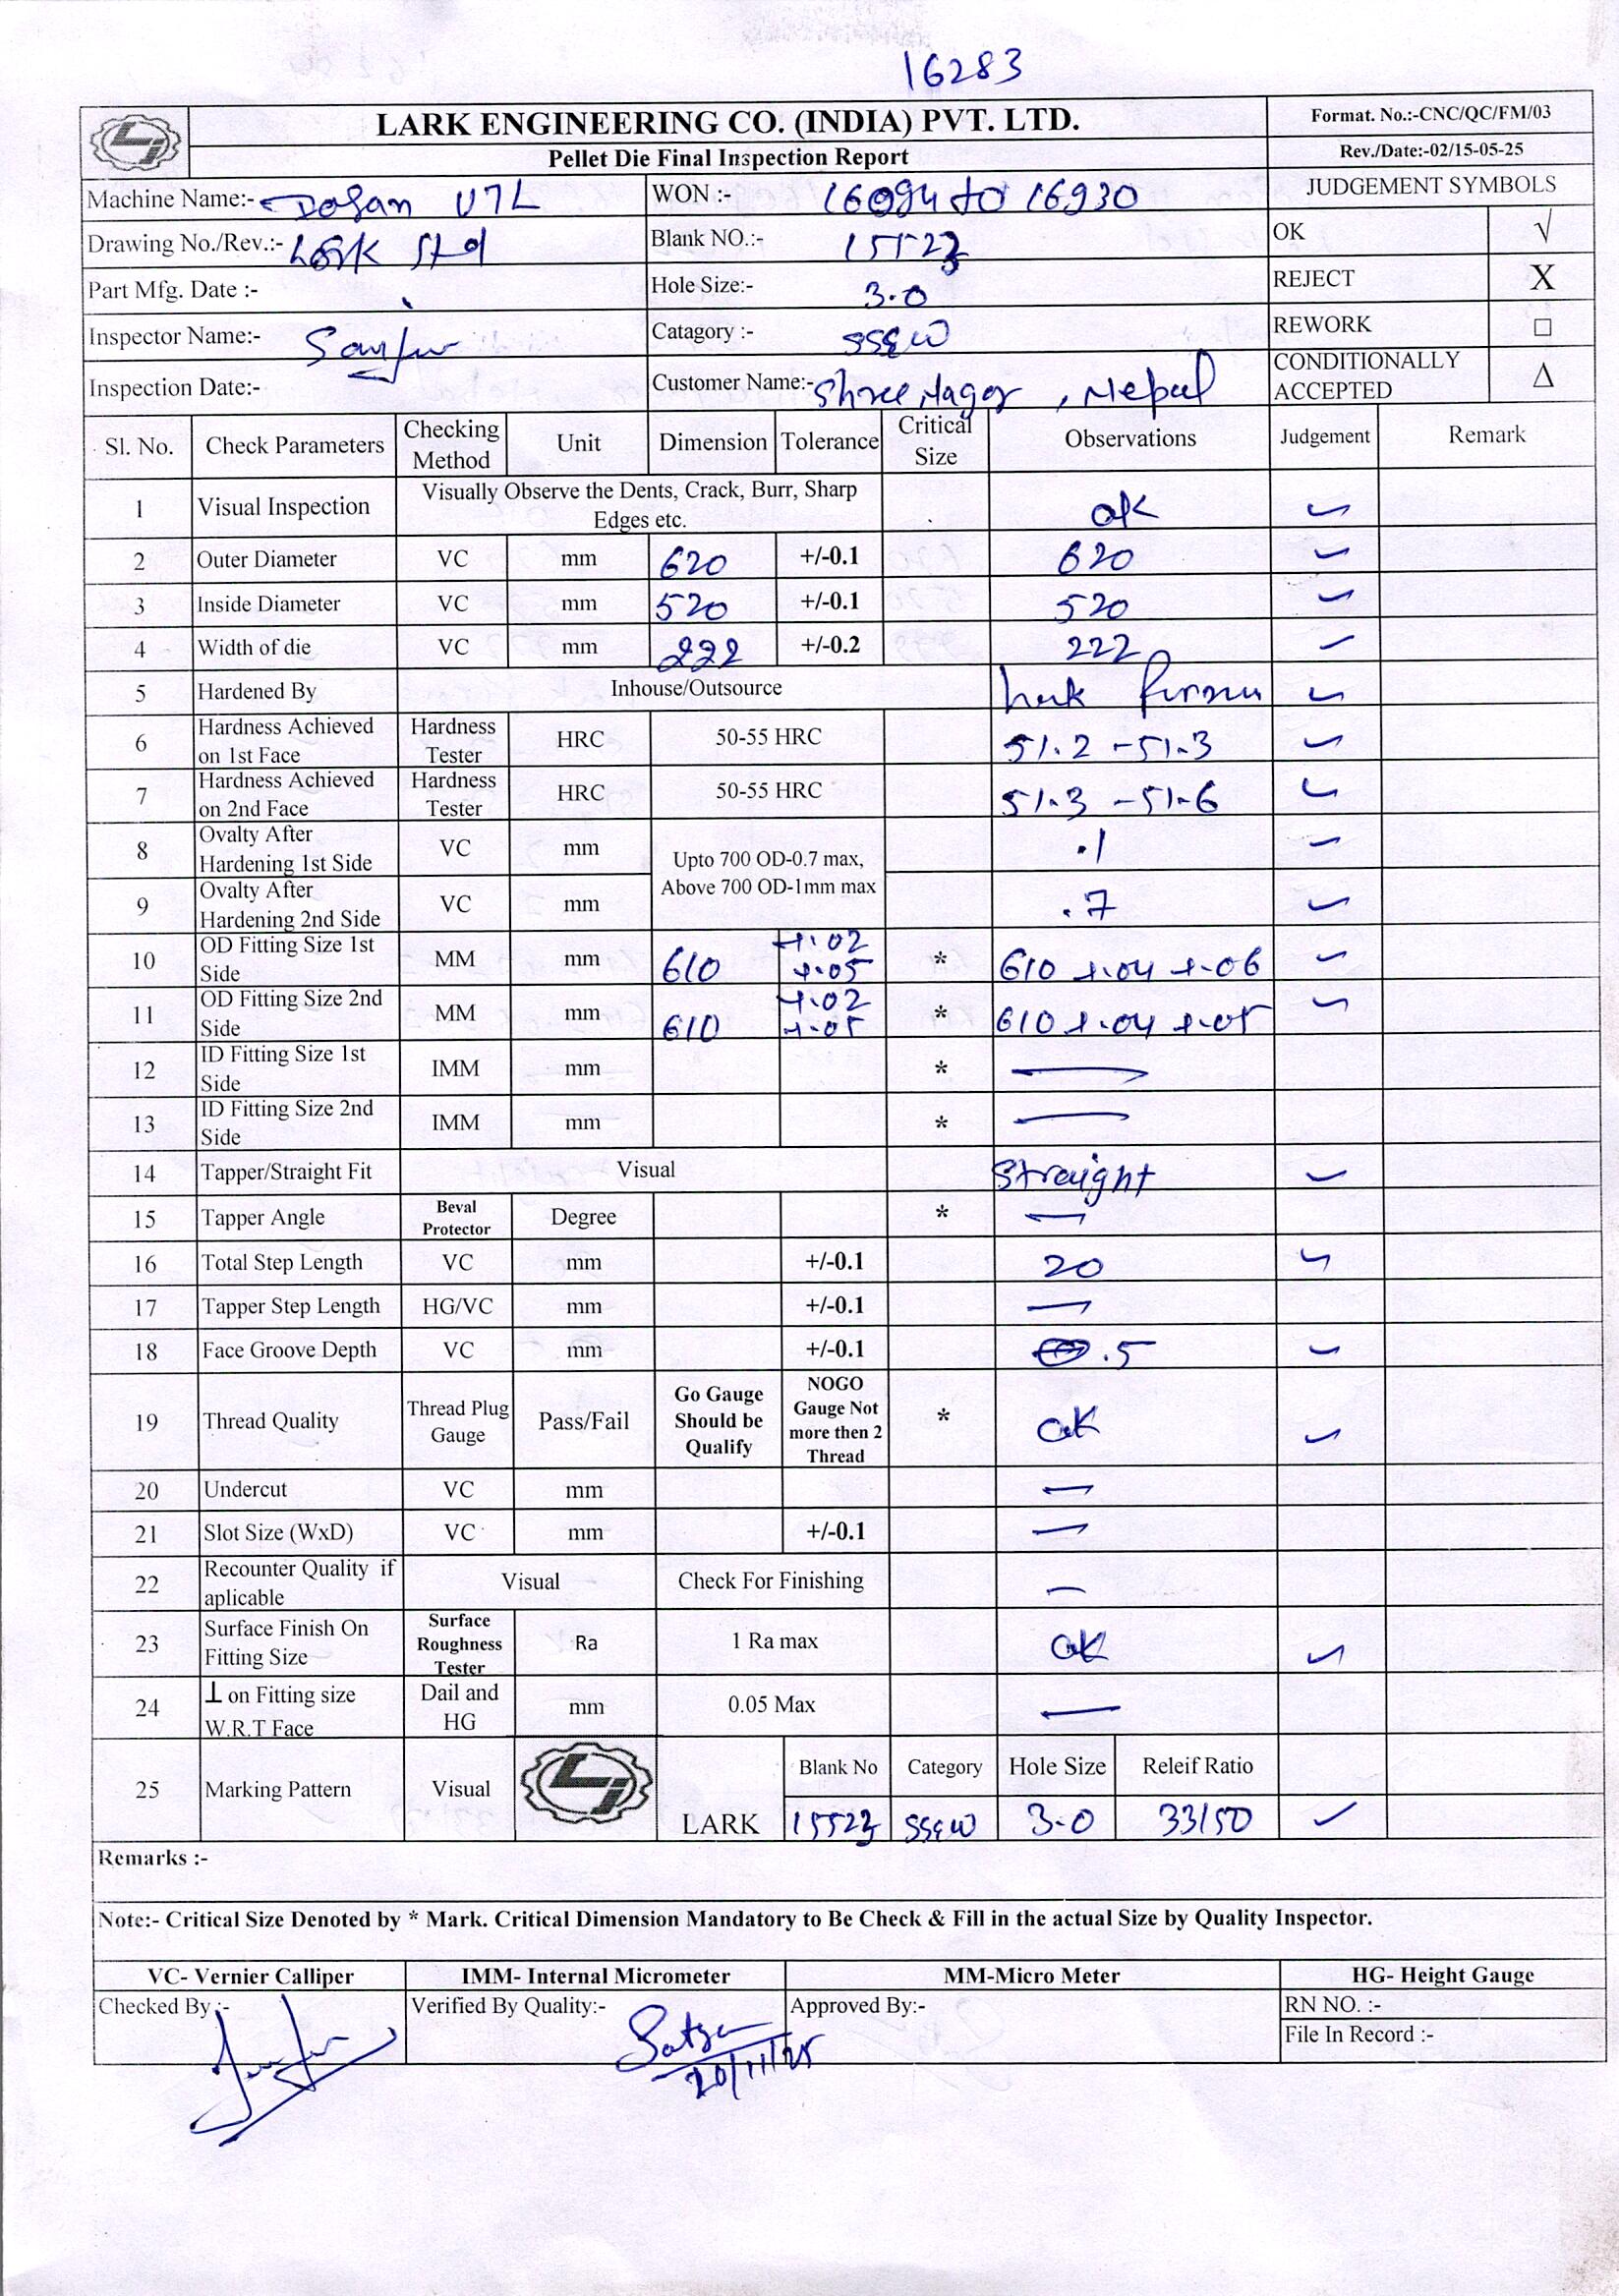 16283
LARK ENGINEERING CO. (INDIA) PVT. LTD.
Format. No.:-CNC/QC/FM/03
Pellet Die Final Inspection Report
Rev./Date:-02/15-05-25
Machine Name:- Dosan U7L WON :- 16094 to 16930 JUDGEMENT SYMBOLS
Drawing No./Rev.:- Lark Std Blank NO.:- 15523 OK √
Part Mfg. Date :- Hole Size:- 3.0 REJECT X
Inspector Name:- Catagory :- SS&W REWORK □
Inspection Date:- Customer Name:- Shree Nagar, Nepal CONDITIONALLY ACCEPTED Δ
Sl. No. Check Parameters Checking Method Unit Dimension Tolerance Critical Size Observations Judgement Remark
1 Visual Inspection Visually Observe the Dents, Crack, Burr, Sharp Edges etc. ok ✓
2 Outer Diameter VC mm 620 +/-0.1 620 ✓
3 Inside Diameter VC mm 520 +/-0.1 520 ✓
4 Width of die VC mm 222 +/-0.2 222 ✓
5 Hardened By Inhouse/Outsource ✓
6 Hardness Achieved on 1st Face Hardness Tester HRC 50-55 HRC 51.2 - 51.3 ✓
7 Hardness Achieved on 2nd Face Hardness Tester HRC 50-55 HRC 51.3 - 51.6 ✓
8 Ovalty After Hardening 1st Side VC mm Upto 700 OD-0.7 max, Above 700 OD-1mm max .1 ✓
9 Ovalty After Hardening 2nd Side VC mm .7 ✓
10 OD Fitting Size 1st Side MM mm 610 +.02 +.05 * 610 +.04 +.06 ✓
11 OD Fitting Size 2nd Side MM mm 610 +.02 +.05 * 610 +.04 +.05 ✓
12 ID Fitting Size 1st Side IMM mm * —
13 ID Fitting Size 2nd Side IMM mm * —
14 Tapper/Straight Fit Visual Straight ✓
15 Tapper Angle Beval Protector Degree * —
16 Total Step Length VC mm +/-0.1 20 ✓
17 Tapper Step Length HG/VC mm +/-0.1 —
18 Face Groove Depth VC mm +/-0.1 .5 ✓
19 Thread Quality Thread Plug Gauge Pass/Fail Go Gauge Should be Qualify NOGO Gauge Not more then 2 Thread * ok ✓
20 Undercut VC mm —
21 Slot Size (WxD) VC mm +/-0.1 —
22 Recounter Quality if aplicable Visual Check For Finishing —
23 Surface Finish On Fitting Size Surface Roughness Tester Ra 1 Ra max ok ✓
24 ⊥ on Fitting size W.R.T Face Dail and HG mm 0.05 Max —
25 Marking Pattern Visual LARK Blank No Category Hole Size Releif Ratio
15523 SS&W 3.0 33/50 ✓
Remarks :-
Note:- Critical Size Denoted by * Mark. Critical Dimension Mandatory to Be Check & Fill in the actual Size by Quality Inspector.
VC- Vernier Calliper IMM- Internal Micrometer MM-Micro Meter HG- Height Gauge
Checked By :- Verified By Quality:- Approved By:- RN NO. :-
File In Record :-
20/11/25